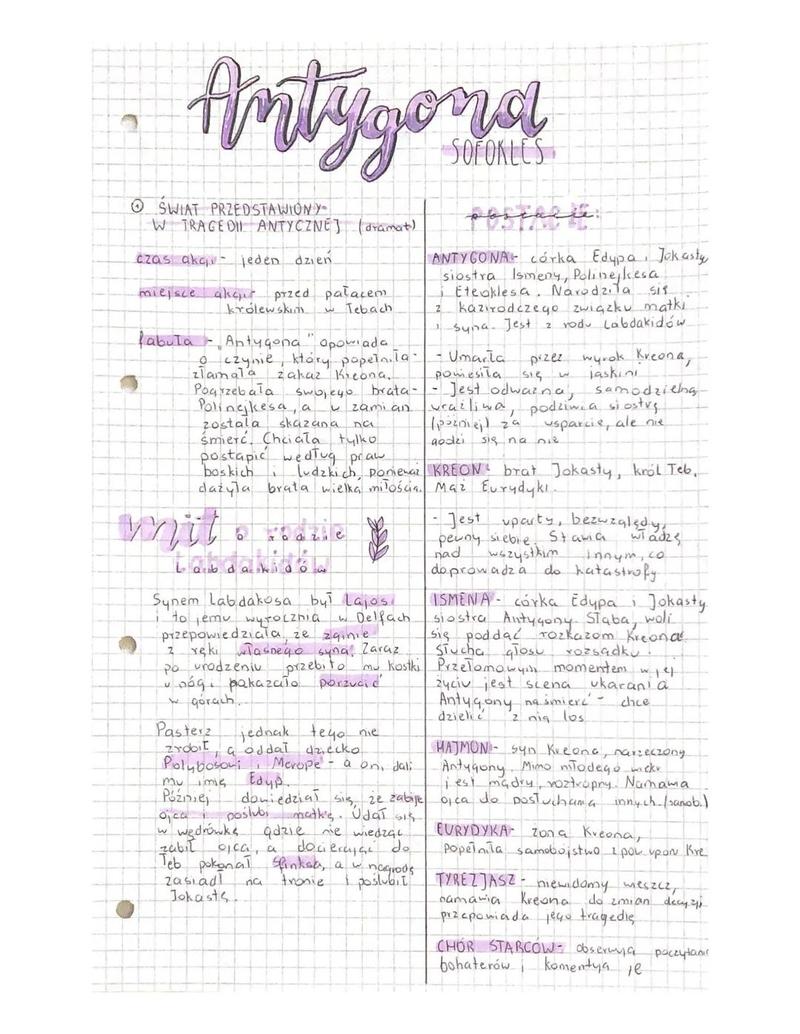 Antygona
SOFOKLES
① ŚWIAT PRZEDSTAWIONY
W TRAGEDII ANTYCZNEJ (dramat)
czas akcji - jeden dzień
miejsce akcji - przed pałacem
królewskim w Tebach
fabuła - „Antygona" opowiada
o czynie, który popełniła -
złamała zakaz Kreona.
Pogrzebała swojego brata -
Polinejkesa, a w zamian
została skazana na
śmierć. Chciała tylko
postąpić według praw
boskich i ludzkich, ponieważ
dażyła brata wielką miłością.
mit o rodzie
Labdakidów
Synem Labdakosa był Lajos
i to jemu wyrocznia w Delfach
przepowiedziała, że zginie
z ręki własnego syna. Zaraz
po urodzeniu przebito mu kostki
u nóg i pokazało porzucić
w górach.
Pasterz jednak tego nie
zrobił, a oddał dziecko
Polybosowi i Merope - a oni dali
mu imię Edyp.
Później dowiedział się, że zabije
ojca i poślubi matkę. Udał się
w wędrówkę gdzie nie wiedząc
zabił ojca, a docierając do
Teb pokonał Sfinksa, a w nagrodę
zasiadł na tronie i poślubił
Jokastę.
postacie:
ANTYGONA - córka Edypa i Jokasty
siostra Ismeny, Polinejkesa
i Eteoklesa. Narodziła się
z kazirodczego związku matki
i syna. Jest z rodu Labdakidów
- Umarła przez wyrok Kreona,
powiesiła się w jaskini
- Jest odważna, samodzielna
wrażliwa, podziwia siostrę
(później) za wsparcie, ale nie
godzi się na nie
KREON - brat Jokasty, król Teb.
Mąż Eurydyki.
- Jest uparty, bezwzględy,
pewny siebie. Stawia władzę
nad wszystkim innym, co
doprowadza do katastrofy
ISMENA - córka Edypa i Jokasty
siostra Antygony. Słaba, woli
się poddać rozkazom Kreona.
Słucha głosu rozsądku.
Przełomowym momentem w jej
życiu jest scena ukarania
Antygony na śmierć - chce
dzielić z nią los
HAJMON - syn Kreona, narzeczony
Antygony. Mimo młodego wieku
jest mądry, roztropny. Namawia
ojca do posłuchania innych. (samob.)
EURYDYKA - żona Kreona,
Popełniła samobójstwo z pow. upor Kre
TYREZJASZ - niewidomy wieszcz,
namawia Kreona do zmian decyzji
przepowiada jego tragedię
CHÓR STARCÓW - obserwują poczytani
bohaterów i komentują je